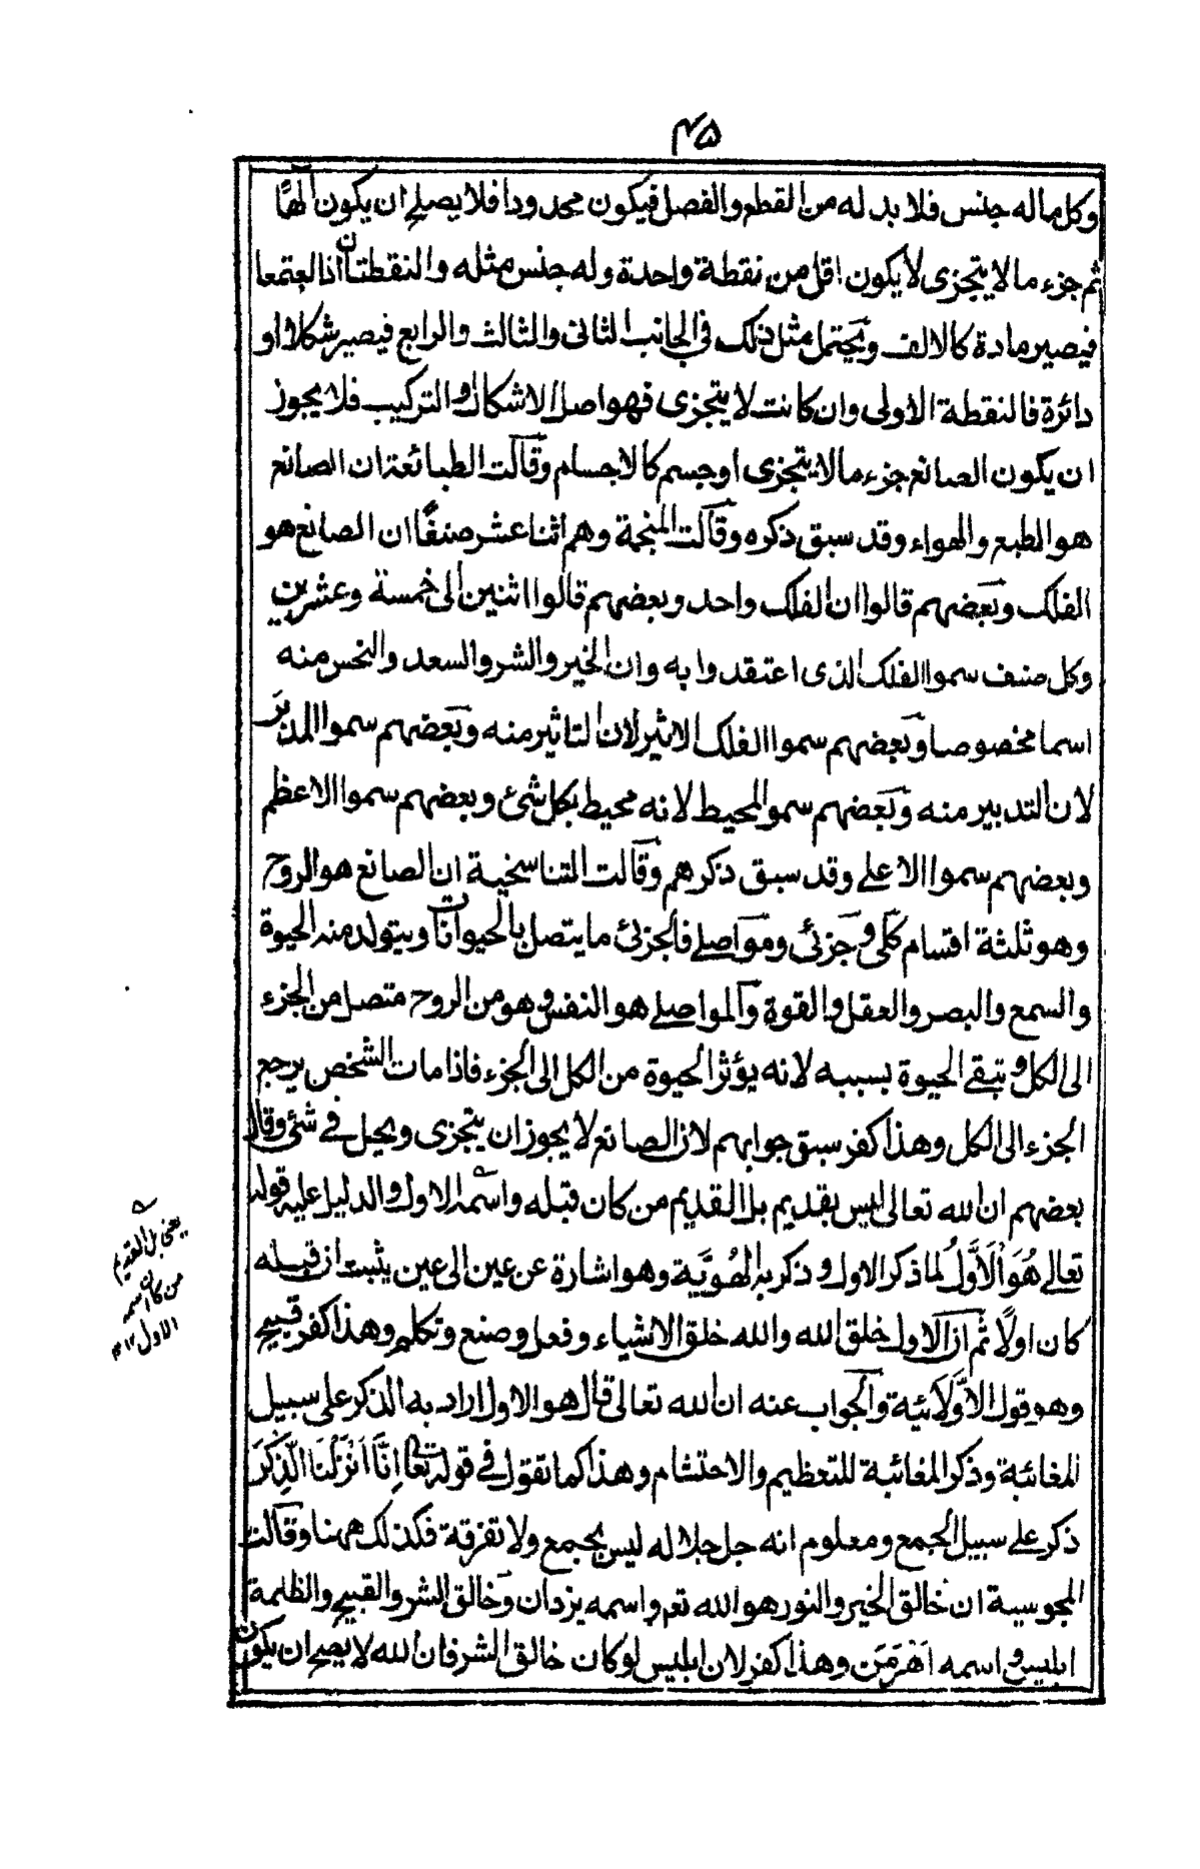 ٤٥
وكل ماله جنس فلا بد له من القطع والفصل فيكون محدودا فلا يصلح ان يكون الٰهًا
ثم جزء ما لا يتجزى لا يكون اقل من نقطة واحدة وله جنس مثله والنقطتان اذا اجتمعا
فيصير مادة كالالف ويحتمل مثل ذلك فى الجانب الثانى والثالث والرابع فيصير شكلا او
دائرة فالنقطة الاولى وان كانت لا يتجزى فهو اصل الاشكال والتركيب فلا يجوز
ان يكون الصانع جزء ما لا يتجزى او جسم كالاجسام وقالت الطبائعة ان الصانع
هو الطبع والهواء وقد سبق ذكره وقالت المنجمة وهم اثنا عشر صنفًا ان الصانع هو
الفلك وبعضهم قالوا ان الفلك واحد وبعضهم قالوا اثنين الى خمسة وعشرين
وكل صنف سموا الفلك الذى اعتقدوا به وان الخير والشر والسعد والنحس منه
اسما مخصوصا وبعضهم سموا الفلك الاثير لان التاثير منه وبعضهم سموا المدبر
لان التدبير منه وبعضهم سموا المحيط لانه محيط بكل شئ وبعضهم سموا الاعظم
وبعضهم سموا الاعلى وقد سبق ذكرهم وقالت التناسخية ان الصانع هو الروح
وهو ثلثة اقسام كلى و جزئى ومواصلى فالجزئى ما يتصل بالحيوانات ويتولد منه الحيوة
والسمع والبصر والعقل والقوة والمواصلى هو النفس وهو من الروح متصل من الجزء
الى الكل و تبقى الحيوة بسببه لانه يؤثر الحيوة من الكل الى الجزء فاذا مات الشخص يرجع
الجزء الى الكل وهذا كفر سبق جوابهم لان الصانع لا يجوز ان يتجزى ويحل فى شئ وقال
بعضهم ان الله تعالى ليس بقديم بل القديم من كان قبله واسمه الاول والدليل عليه قوله
تعالى هُوَ الْاَوَّلُ لما ذكر الاول و ذكر به الهُوِيَّة وهو اشارة عن عين الى عين يثبت ان قبله
كان اولًا ثم ان الاول خلق الله والله خلق الاشياء وفعل وصنع وتكلم وهذا كفر قبيح
وهو قول الاَوَّلَائية والجواب عنه ان الله تعالى قال هو الاول اراد به الذكر على سبيل
المغائبة وذكر المغائبة للتعظيم والاحتشام وهذا كما نقول فى قوله تعالى اِنَّا اَنْزَلْنَا الذِّكْرَ
ذكر على سبيل الجمع ومعلوم انه جل جلاله ليس بجمع ولا تفرقة فكذلك ههنا وقالت
المجوسية ان خالق الخير والنور هو الله تعم واسمه يزدان وخالق الشر والقبيح والظلمة
ابليس و اسمه اَهْرَمَن وهذا كفر لان ابليس لو كان خالق الشر فان الله لا يصح ان يكون
يعنى بل القديم
من كان اسمه
الاول ١٢ م